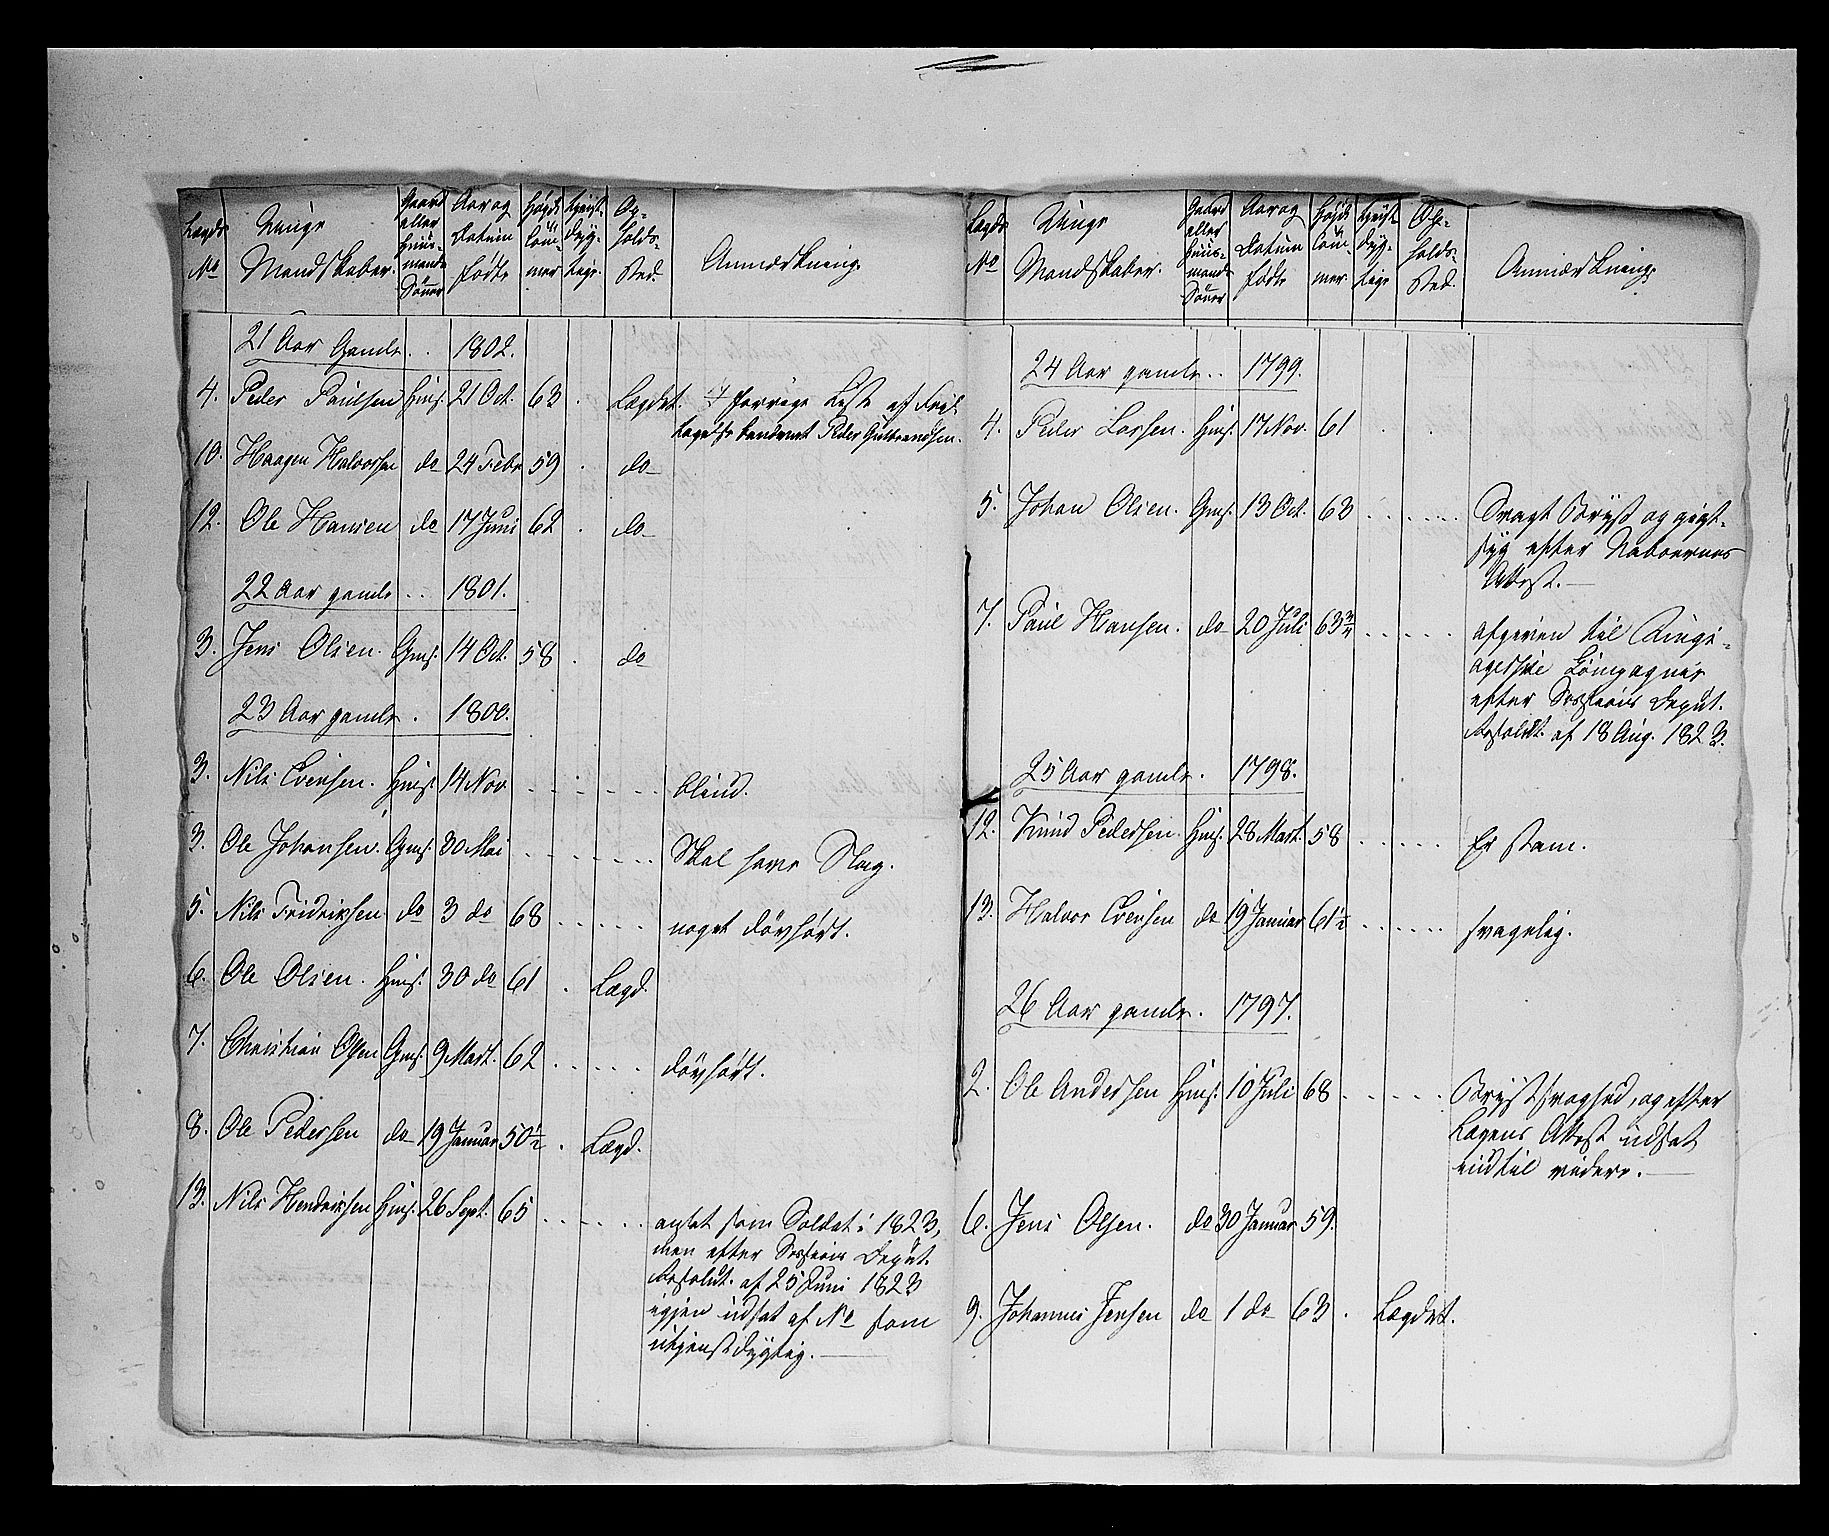 Lægds No | Unge Mandskaber. | Gaard eller Huus-mands Sönner | Aar og Datum födte | Höyde Tom-mer | tjenst-dyg-tige | Op-holds-Sted. | Anmærkning.
21 Aar Gamle . . 1802.
4. Peder Paulsen Hms. 21 Oct. 63 . Lægdet. I forrige Liste af
Lagets benævnt Peder Gulbrandsen.
10. Haagen Halvorsen do 24 Febr 59 . do
12. Ole Hansen do 17 Juni 62 . do
22 Aar gamle . . 1801.
3. Jens Olsen. Gms. 14 Oct. 58 . do
23 Aar gamle . 1800.
3. Nils Evensen. Hms. 14 Nov . . . . . . blind.
3. Ole Johansen. Gms. 30 Mai . . . . . . . Skal have Slag.
5. Nils Fridriksen do 3 do 68 . . . . . noget dövhört.
6. Ole Olsen. Hms. 30 do 61 . Lægd.
7. Christian Olsen Gms. 9 Mart. 62 . . . . . dövhört.
8. Ole Pedersen do 19 Januar 50½ . Lægd.
13. Nils Hendriksen Hms. 26 Sept. 65 . . . . . . ansat som Soldat i 1823,
men efter Sessions Deput.
Resolut. af 25 Juni 1823
igjen udsat af No som
utjenstdygtig.
Lægds No | Unge Mandskaber. | Gaard eller Huus-mands Sönner | Aar og Datum födte | Höyde Tom-mer. | tjenst dyg-tige | Op-holds-Sted. | Anmærkning.
24 Aar gamle . . 1799.
4. Peder Larsen. Hms. 17 Nov. 61 .
5. Johan Olsen. Gms. 13 Oct. 63 . . . . . . Svagt Bryst og gigt-
syg efter Naboernes
Attest.
7. Paul Hansen. do 20 Juli 63¾ . . . . . afgiven til Ringe-
agerske Compagnie
efter Sessions Deput.
Resolut. af 18 Aug. 1823.
25 Aar gamle. 1798.
12. Knud Pedersen. Hms. 28 Mart. 58 . . . . . Er stam.
13. Halvor Evensen do 19 Januar 61½ . . . . . . svagelig.
26 Aar gamle. 1797.
2. Ole Andersen Hms. 10 Juli 68 . . . . . . Brystsvaghed, og efter
Lægens Attest udsat
indtil videre.
6. Jens Olsen. do 30 Januar 59.
9. Johannes Jensen do 1 do 63 . Lægdet.